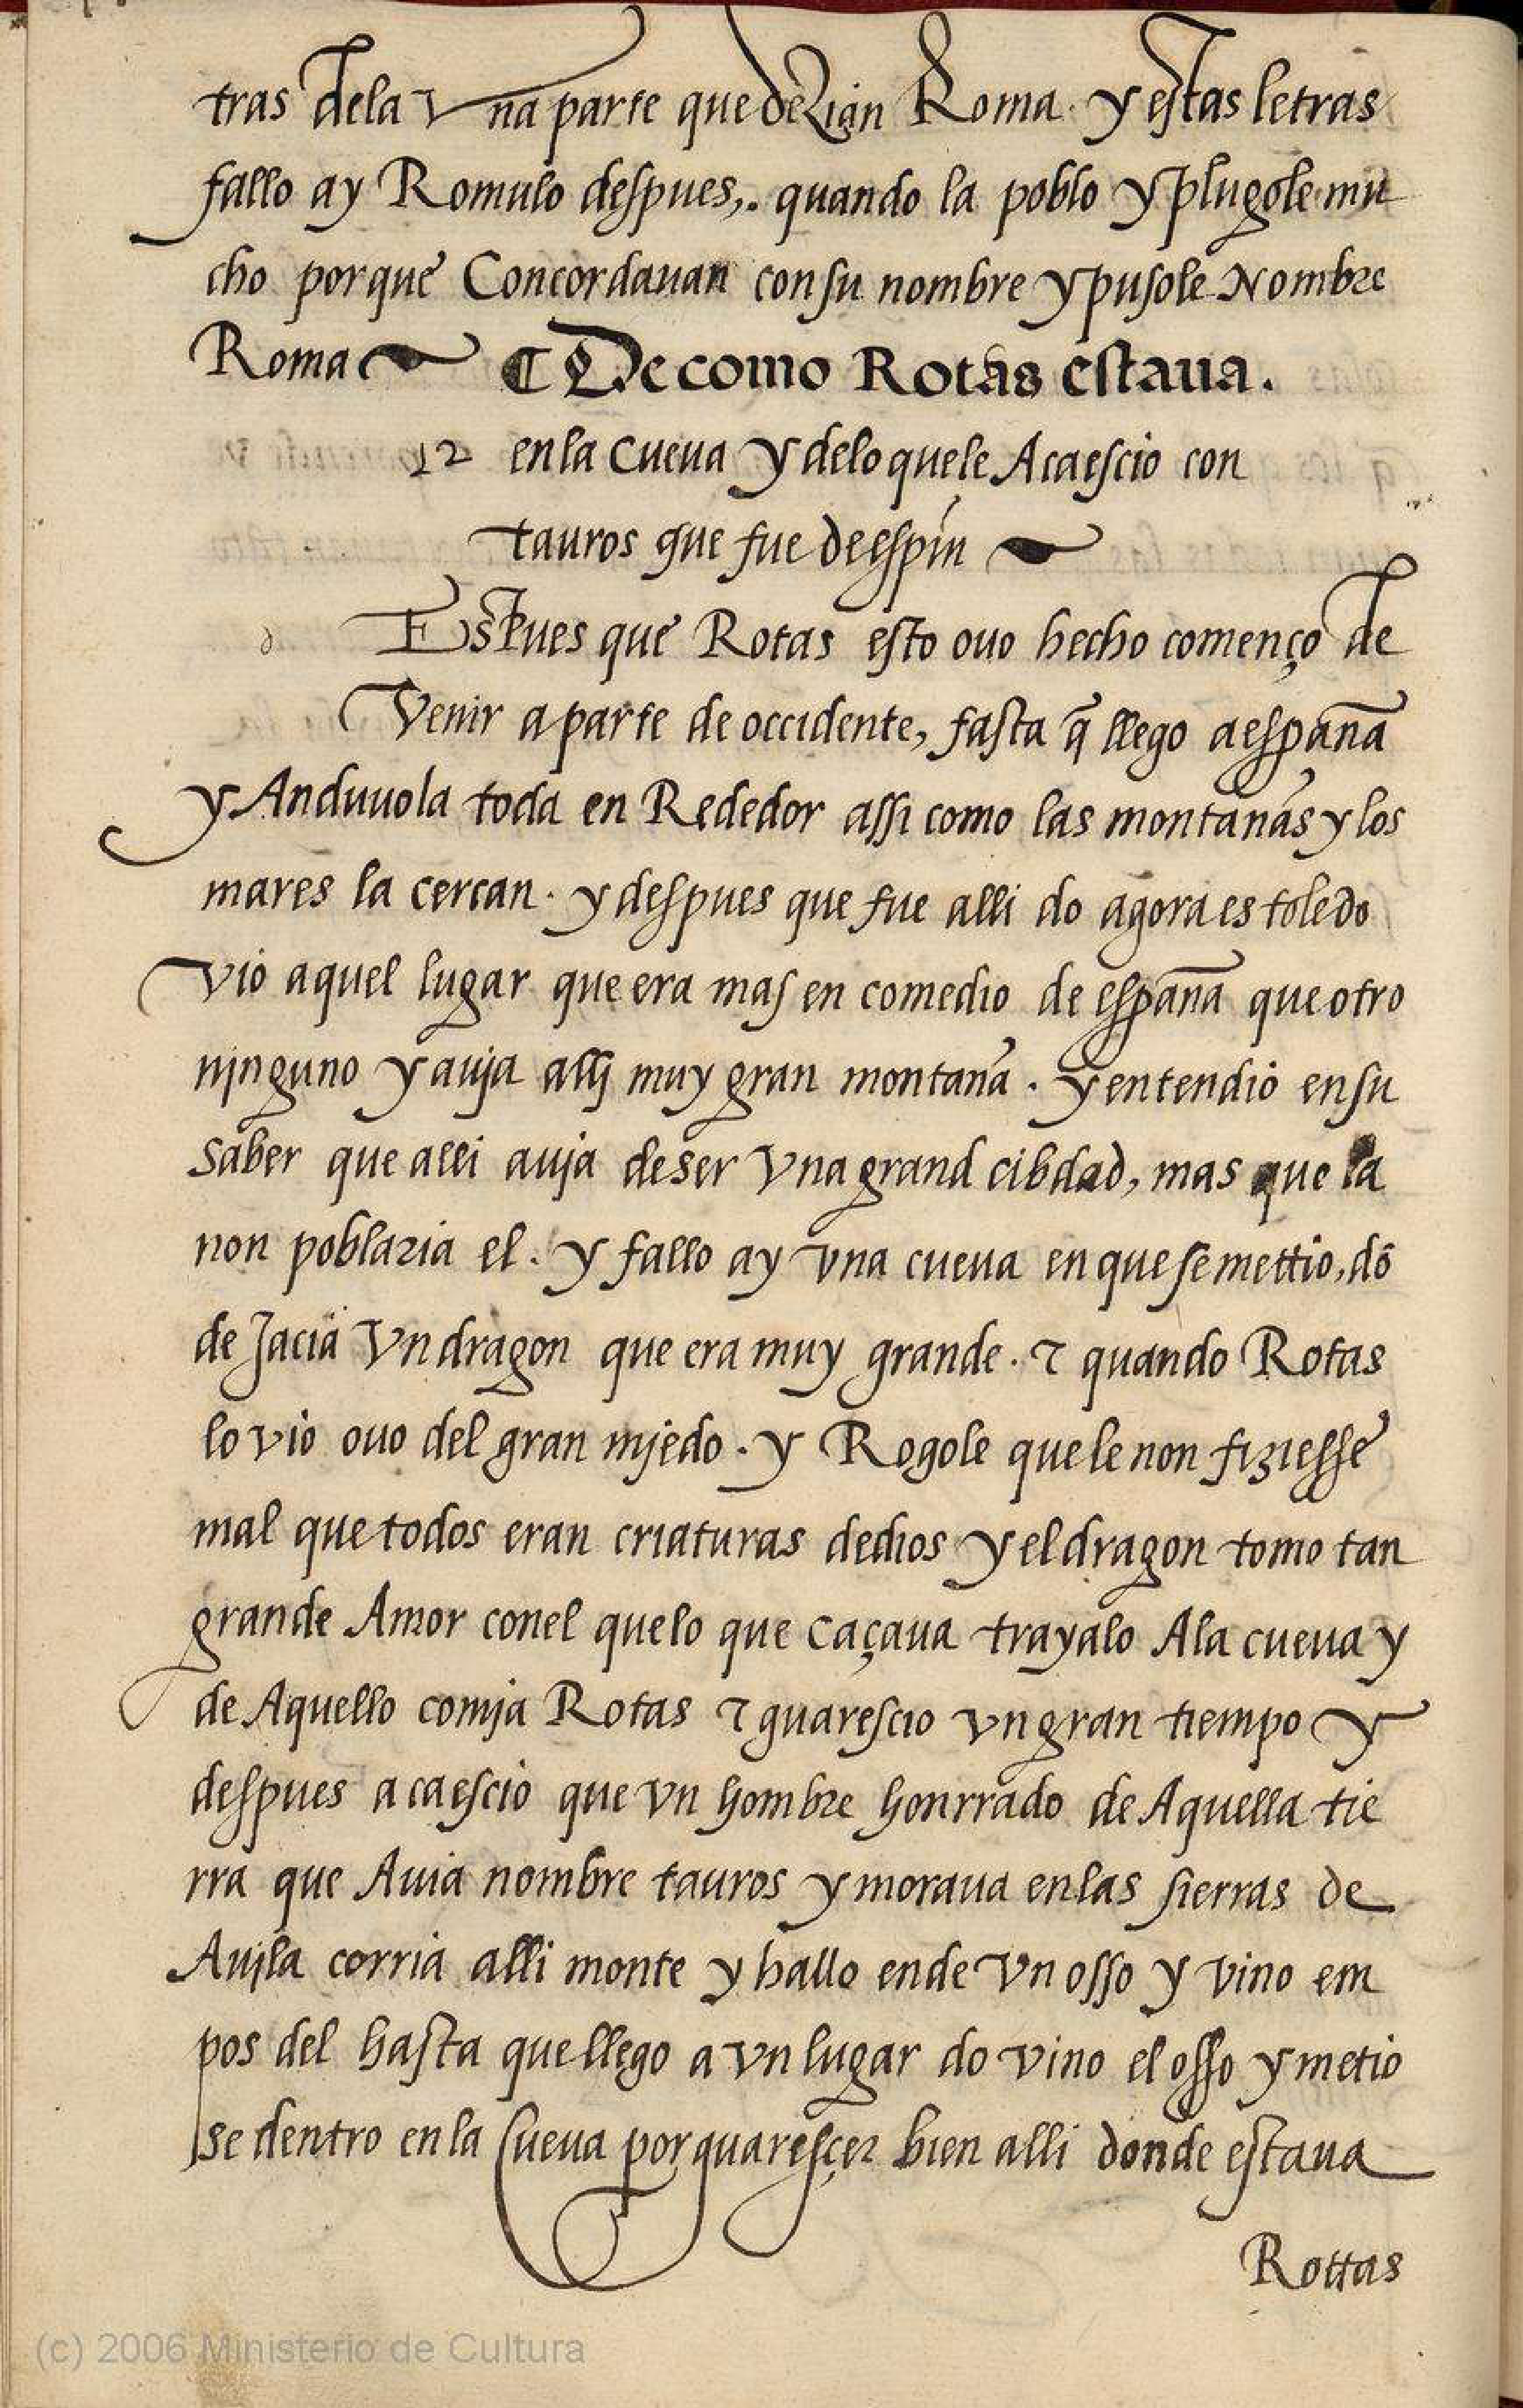 tras dela vna parte que dezian Roma. y estas letras
fallo ay Romulo despues,. quando la poblo y plugole mu
cho porque Concordauan con su nombre y pusole Nombre
Roma ¶ De como Rotas estaua.
12 en la cueua y delo quele Acaescio con
tauros que fue de espin
d Espues que Rotas esto ouo hecho començo de
Venir a parte de occidente, fasta q̃ llego a españa
y Anduuola toda en Rededor assi como las montañas y los
mares la cercan. y despues que fue alli do agora es toledo
vio aquel lugar que era mas en comedio de españa que otro
ninguno y auja allj muy gran montaña. y entendio en su
saber que alli auja de ser vna grand cibdad, mas que la
non poblaria el. y fallo ay vna cueua en que se mettio, dõ
de Jacia Vn dragon que era muy grande. ⁊ quando Rotas
lo vio ouo del gran mjedo. y Rogole que le non fiziesse
mal que todos eran criaturas de dios y el dragon tomo tan
grande Amor conel quelo que caçaua trayalo Ala cueua y
de Aquello comja Rotas ⁊ guarescio vn gran tiempo y
despues acaescio que vn hombre honrrado de Aquella tie
rra que Auia nombre tauros y moraua en las sierras de
Aujla corria alli monte y hallo ende vn osso y vino em
pos del hasta que llego a vn lugar do vino el osso y metio
se dentro en la Cueua por guaresçer bien alli donde estaua
Rottas
(c) 2006 Ministerio de Cultura